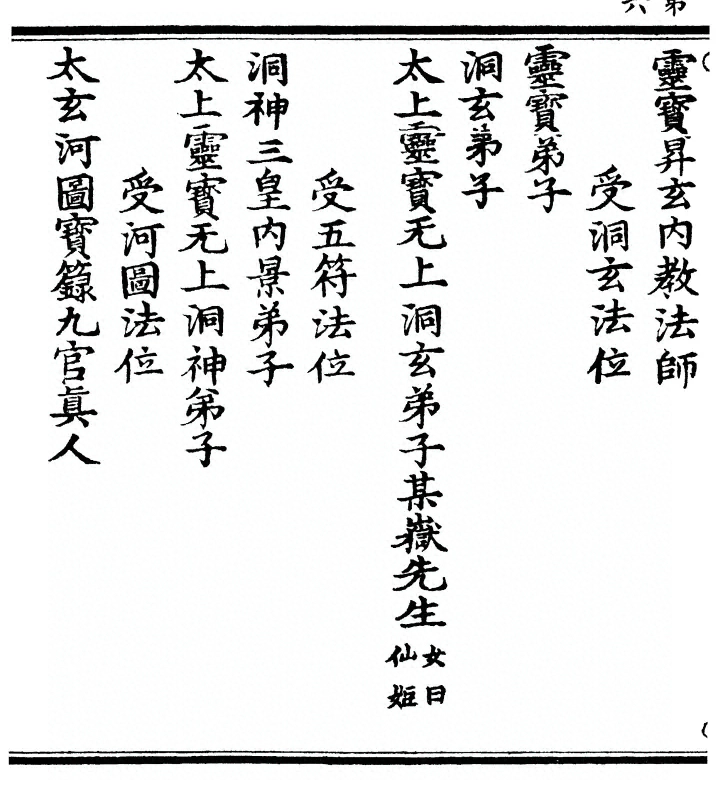 第
六
靈寶昇玄内教法師
受洞玄法位
靈寶弟子
洞玄弟子
太上靈寶无上洞玄弟子某嶽先生女曰仙姫
受五符法位
洞神三皇内景弟子
太上靈寶无上洞神弟子
受河圖法位
太玄河圖寶籙九官真人